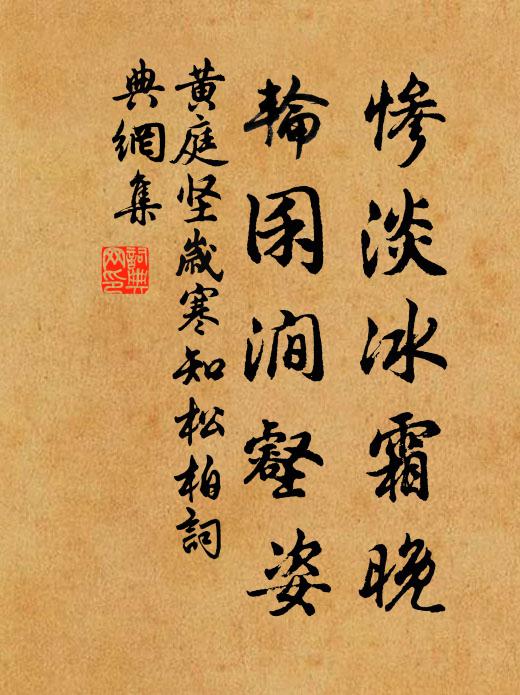 慘淡冰霜晚
輪囷澗壑姿
黃庭坚歲寒知松柏詞
典網集
詞典
网印